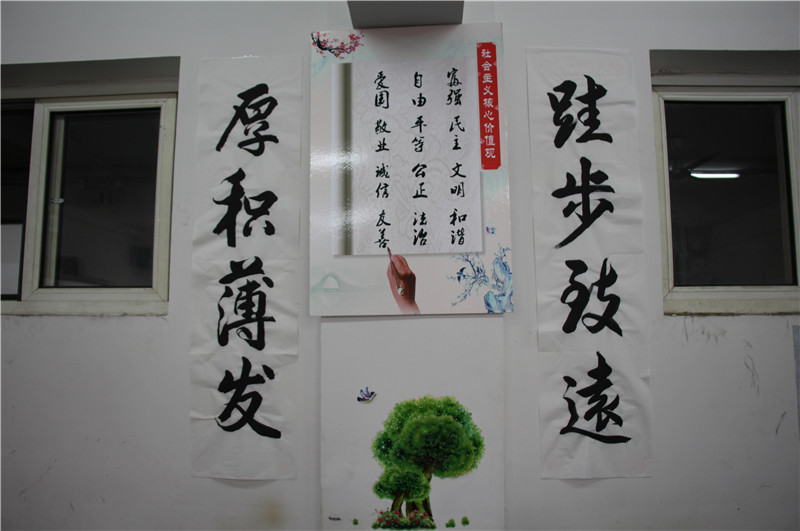 跬步致遠
社会主义核心价值观
富强 民主 文明 和谐
自由 平等 公正 法治
爱国 敬业 诚信 友善
厚积薄发